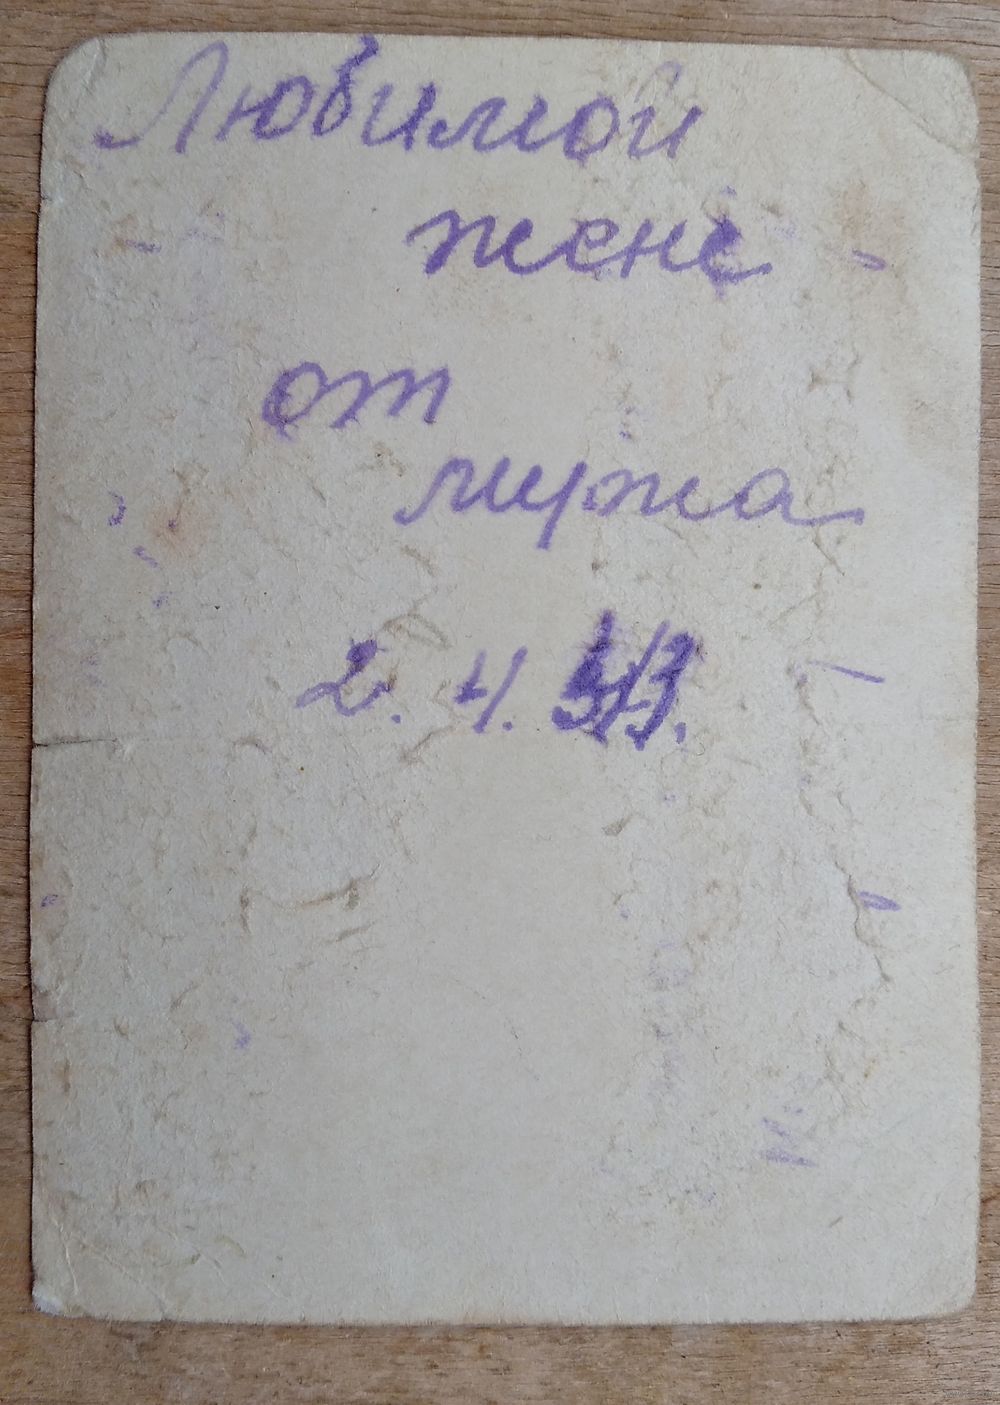 Любимой
жене
от
мужа
2. 4. 53.